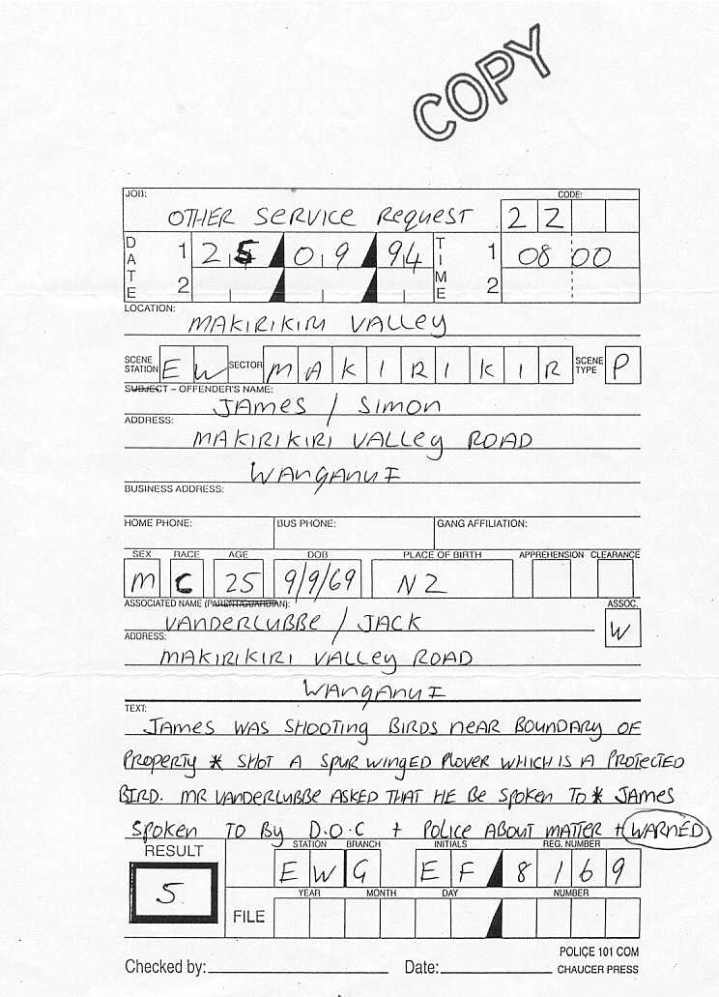 COPY
JOB: CODE:
OTHER SERVICE REQUEST 2 2
DATE 1 25 09 94 TIME 1 08 00
2 2
LOCATION:
MAKIRIKIRI VALLEY
SCENE STATION E W SECTOR M A K I R I K I R SCENE TYPE P
SUBJECT – OFFENDER'S NAME:
JAMES / SIMON
ADDRESS:
MAKIRIKIRI VALLEY ROAD
WANGANUI
BUSINESS ADDRESS:
HOME PHONE: BUS PHONE: GANG AFFILIATION:
SEX RACE AGE DOB PLACE OF BIRTH APPREHENSION CLEARANCE
M C 25 9/9/69 NZ
ASSOCIATED NAME (PARENT/GUARDIAN): ASSOC.
VANDERLUBBE / JACK W
ADDRESS:
MAKIRIKIRI VALLEY ROAD
WANGANUI
TEXT:
JAMES WAS SHOOTING BIRDS NEAR BOUNDARY OF
PROPERTY * SHOT A SPUR WINGED PLOVER WHICH IS A PROTECTED
BIRD. MR VANDERLUBBE ASKED THAT HE BE SPOKEN TO * JAMES
SPOKEN TO BY D.O.C + POLICE ABOUT MATTER + WARNED
RESULT STATION BRANCH INITIALS REG. NUMBER
5 E W G E F 8 1 6 9
YEAR MONTH DAY NUMBER
FILE
POLICE 101 COM
Checked by: Date: CHAUCER PRESS